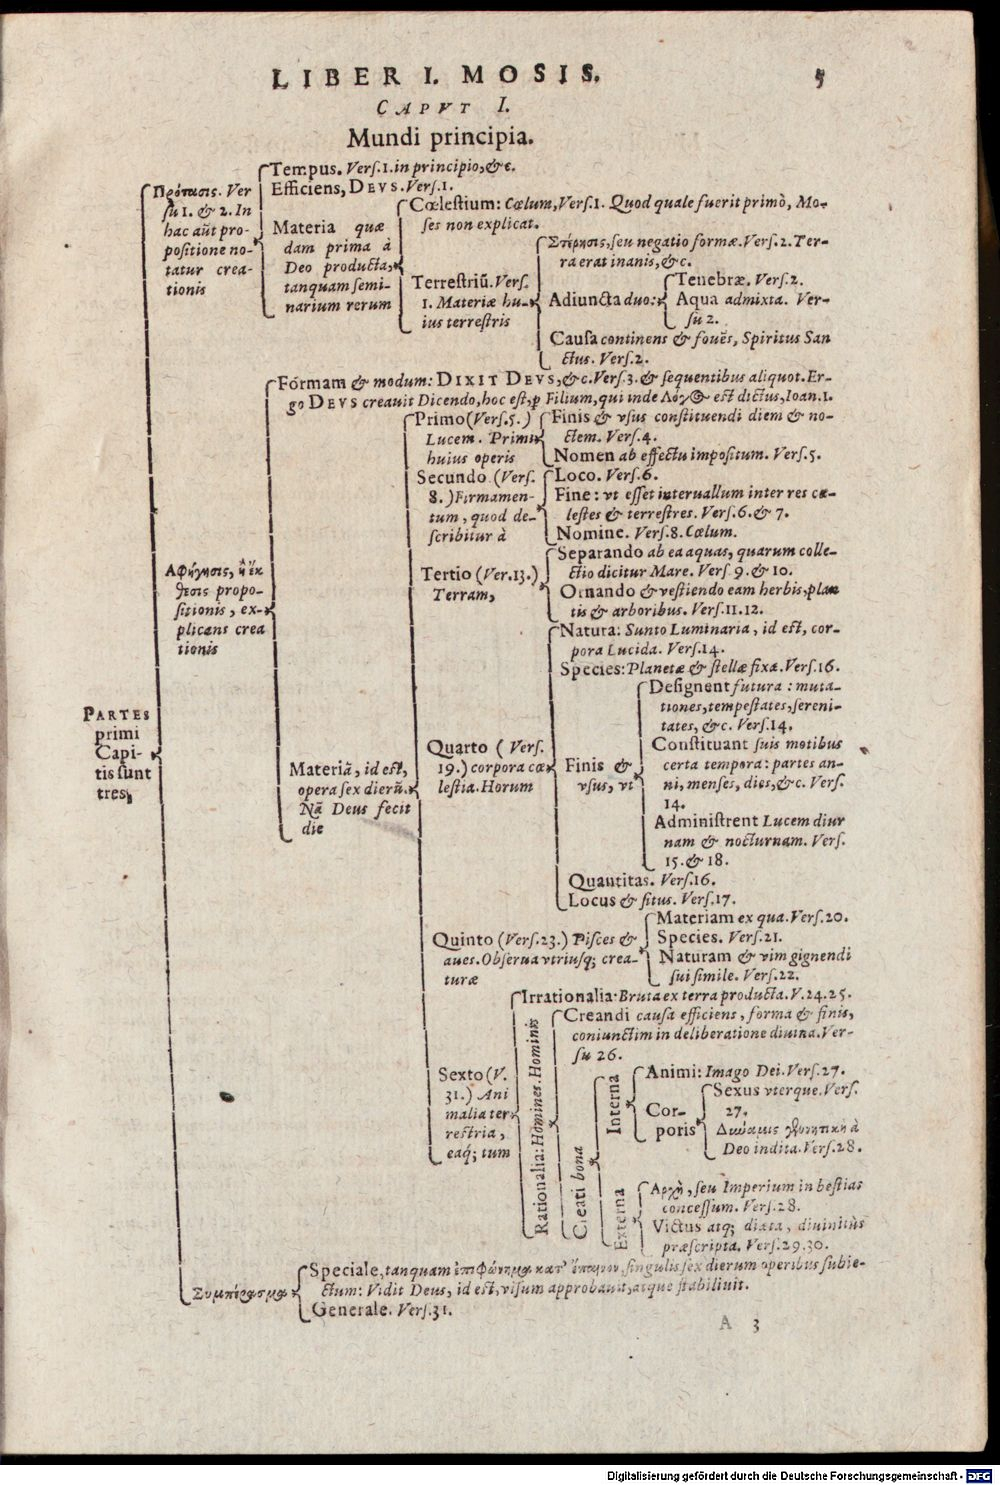 LIBER I. MOSIS. 5
CAPVT I.
Mundi principia.
PARTES
primi
Capi-
tis sunt
tres,
Πρότασις. Ver
su 1. & 2. In
hac aūt pro-
positione no-
tatur crea-
tionis
Tempus. Vers. 1. in principio, &c.
Efficiens, DEVS. Vers. 1.
Materia quæ
dam prima à
Deo producta,
tanquam semi-
narium rerum
Cœlestium: Cœlum, Vers. 1. Quod quale fuerit primò, Mo-
ses non explicat.
Terrestriū. Vers.
1. Materiæ hu-
ius terrestris
Στέρησις, seu negatio formæ. Vers. 2. Ter-
ra erat inanis, &c.
Adiuncta duo:
Tenebræ. Vers. 2.
Aqua admixta. Ver-
su 2.
Causa continens & fouēs, Spiritus San
ctus. Vers. 2.
Αφήγησις, ἢ ἔκ
θεσις propo-
sitionis, ex-
plicans crea
tionis
Formam & modum: DIXIT DEVS, &c. Vers. 3. & sequentibus aliquot. Er-
go DEVS creauit Dicendo, hoc est, ꝑ Filium, qui inde Λόγος est dictus, Ioan. 1.
Materiā, id est,
opera sex dierū.
Nā Deus fecit
die
Primo (Vers. 5.)
Lucem. Primi
huius operis
Finis & vsus constituendi diem & no-
ctem. Vers. 4.
Nomen ab effectu impositum. Vers. 5.
Secundo (Vers.
8.) Firmamen-
tum, quod de-
scribitur à
Loco. Vers. 6.
Fine: vt esset interuallum inter res cœ-
lestes & terrestres. Vers. 6. & 7.
Nomine. Vers. 8. Cœlum.
Tertio (Ver. 13.)
Terram,
Separando ab ea aquas, quarum colle-
ctio dicitur Mare. Vers. 9. & 10.
Ornando & vestiendo eam herbis, plan
tis & arboribus. Vers. 11. 12.
Quarto (Vers.
19.) corpora cœ
lestia. Horum
Natura: Sunto Luminaria, id est, cor-
pora Lucida. Vers. 14.
Species: Planetæ & stellæ fixæ. Vers. 16.
Finis &
vsus, vt
Designent futura: muta-
tiones, tempestates, sereni-
tates, &c. Vers. 14.
Constituant suis motibus
certa tempora: partes an-
ni, menses, dies, &c. Vers.
14.
Administrent Lucem diur
nam & nocturnam. Vers.
15. & 18.
Quantitas. Vers. 16.
Locus & situs. Vers. 17.
Quinto (Vers. 23.) Pisces &
aues. Obserua vtriusq; crea-
turæ
Materiam ex qua. Vers. 20.
Species. Vers. 21.
Naturam & vim gignendi
sui simile. Vers. 22.
Sexto (V.
31.) Ani
malia ter
restria,
eaq́; tum
Irrationalia: Bruta ex terra producta. V. 24. 25.
Rationalia: Homines. Hominis
Creandi causa efficiens, forma & finis,
coniunctim in deliberatione diuina. Ver-
su 26.
Creati bona
Interna
Animi: Imago Dei. Vers. 27.
Cor-
poris
Sexus vterque. Vers.
27.
Δύναμις γεννητικὴ à
Deo indita. Vers. 28.
Externa
Αρχὴ, seu Imperium in bestias
concessum. Vers. 28.
Victus atq; diæta, diuinitùs
præscripta. Vers. 29. 30.
Συμπέρασμα
Speciale, tanquam ἐπιφώνημα κατ' ἔπαινον, singulis sex dierum operibus subie-
ctum: Vidit Deus, id est, visum approbauit, atque stabiliuit.
Generale. Vers. 31.
A 3
Digitalisierung gefördert durch die Deutsche Forschungsgemeinschaft - DFG